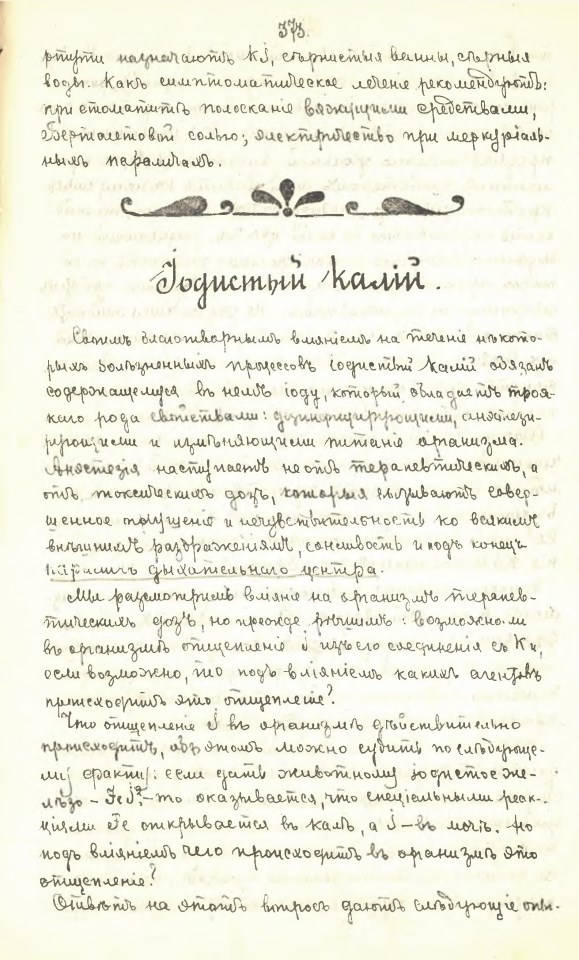 373.
ртути назначаютъ KJ, сѣрнистыя ванны, сѣрныя
воды. Какъ симптоматическое леченіе рекомендуютъ:
при стоматитѣ полосканіе вяжущими средствами,
Бертолетовой солью; электричество при меркуріаль-
ныхъ параличахъ.
Іодистый Калій.
Своимъ благотворнымъ вліяніемъ на теченіе нѣкото-
рыхъ болѣзненныхъ процессовъ іодистый калій обязанъ
содержащемуся въ немъ іоду, который обладаетъ троя-
каго рода свойствами: дезинфицирующими, анэстези-
рующими и измѣняющими питаніе организма.
Анэстезія наступаетъ не отъ терапевтическихъ, а
отъ токсическихъ дозъ, которыя вызываютъ совер-
шенное отупѣніе и нечувствительность ко всякимъ
внѣшнимъ раздраженіямъ, сонливость и подъ конецъ
параличъ дыхательнаго центра.
Мы разсмотримъ вліяніе на организмъ терапев-
тическихъ дозъ, но прежде рѣшимъ: возможно-ли
въ организмѣ отщепленіе J изъ его соединенія съ K и,
если возможно, то подъ вліяніемъ какихъ агентовъ
происходитъ это отщепленіе?
Что отщепленіе J въ организмѣ дѣйствительно
происходитъ, объ этомъ можно судить по слѣдующе-
му факту: если дать животному іодистое же-
лѣзо – FeJ² – то оказывается, что спеціальными реак-
ціями Fe открывается въ калѣ, а J – въ мочѣ. Но
подъ вліяніемъ чего происходитъ въ организмѣ это
отщепленіе?
Отвѣтъ на этотъ вопросъ даютъ слѣдующіе опы-